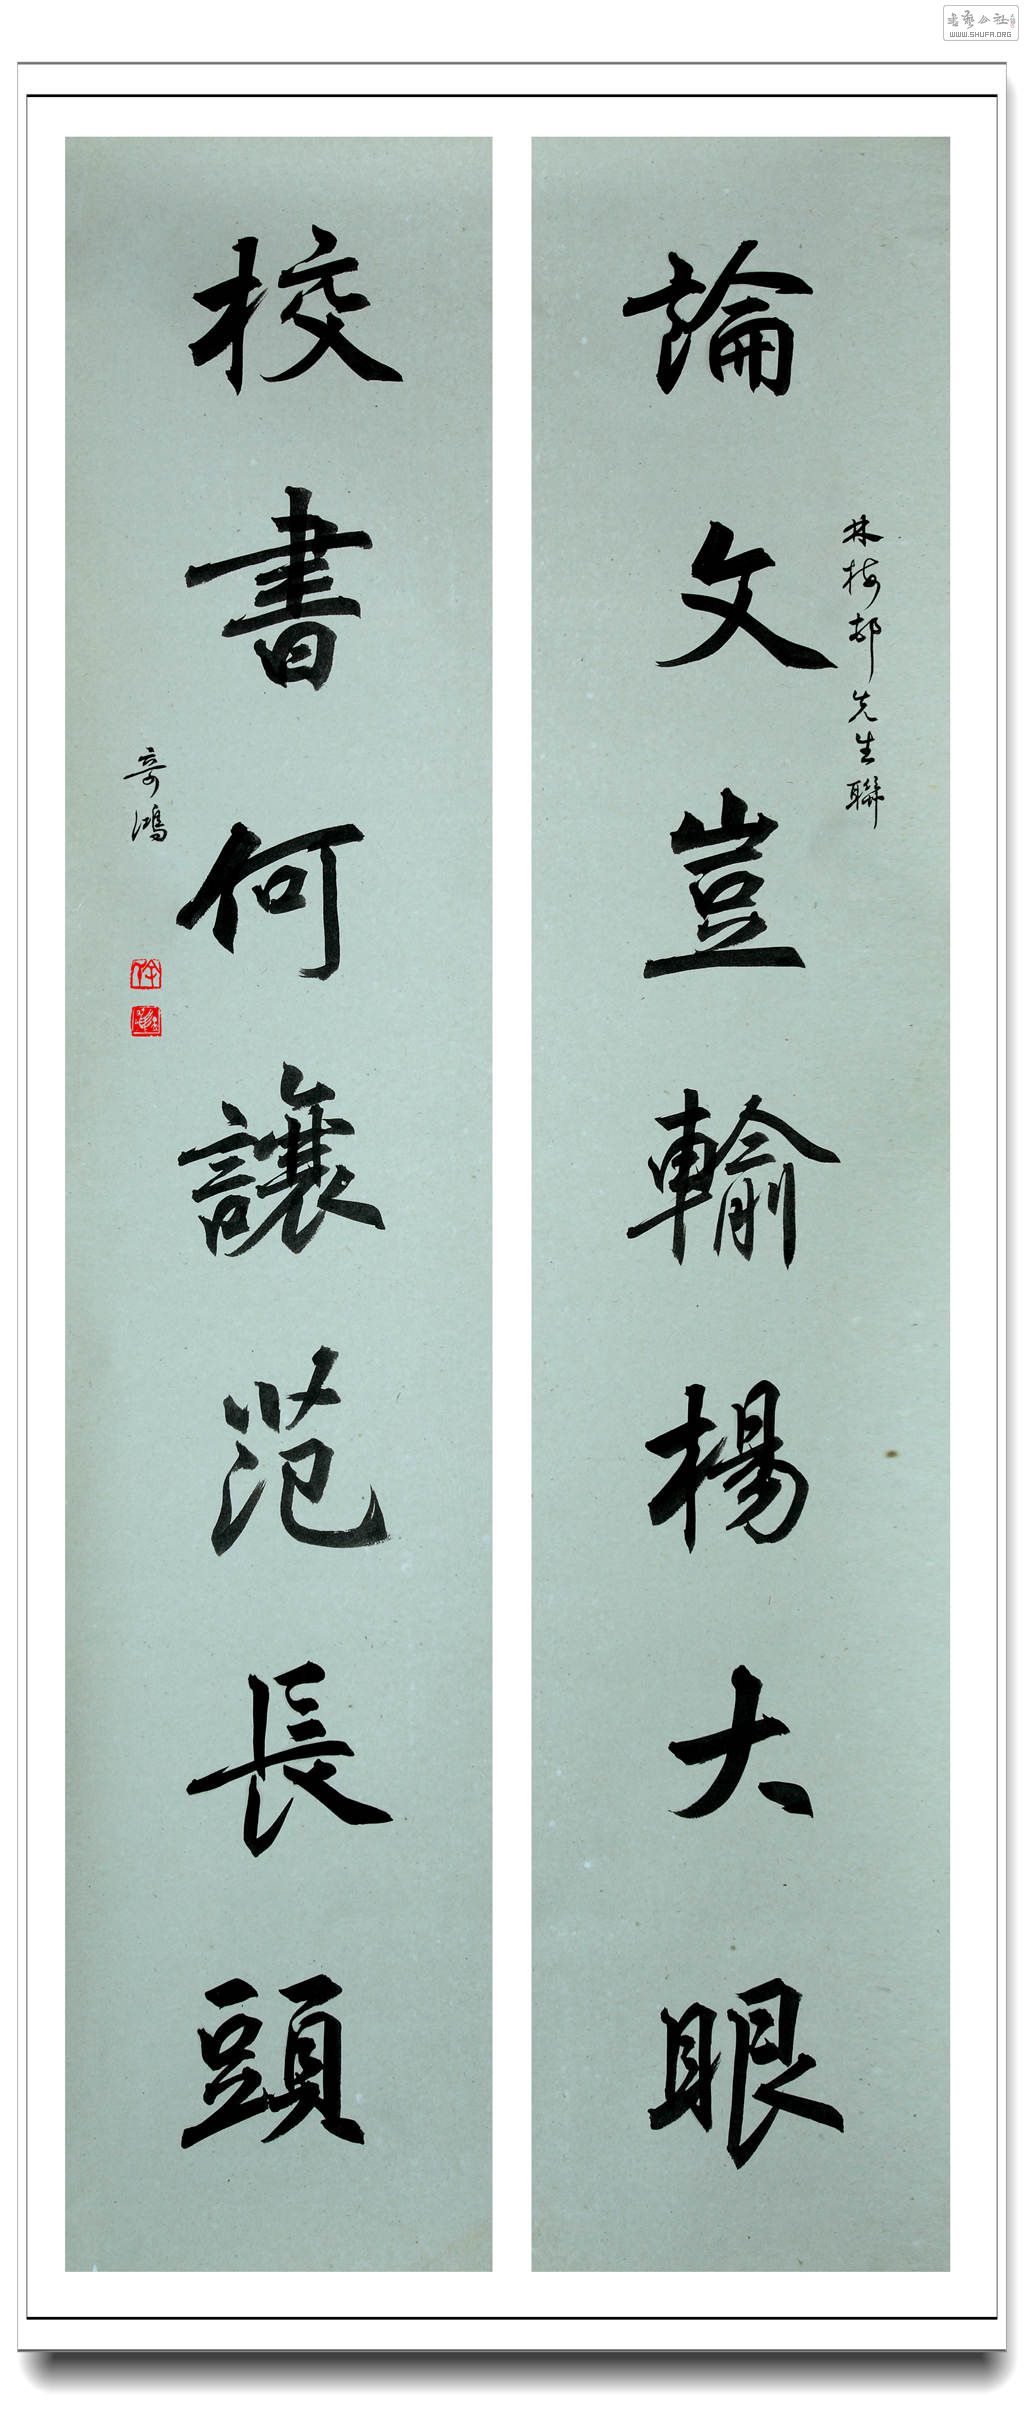 論文豈輸楊大眼
林梅邨先生聯
校書何讓范長頭
奇鴻
書藝公社
WWW.SHUFA.ORG